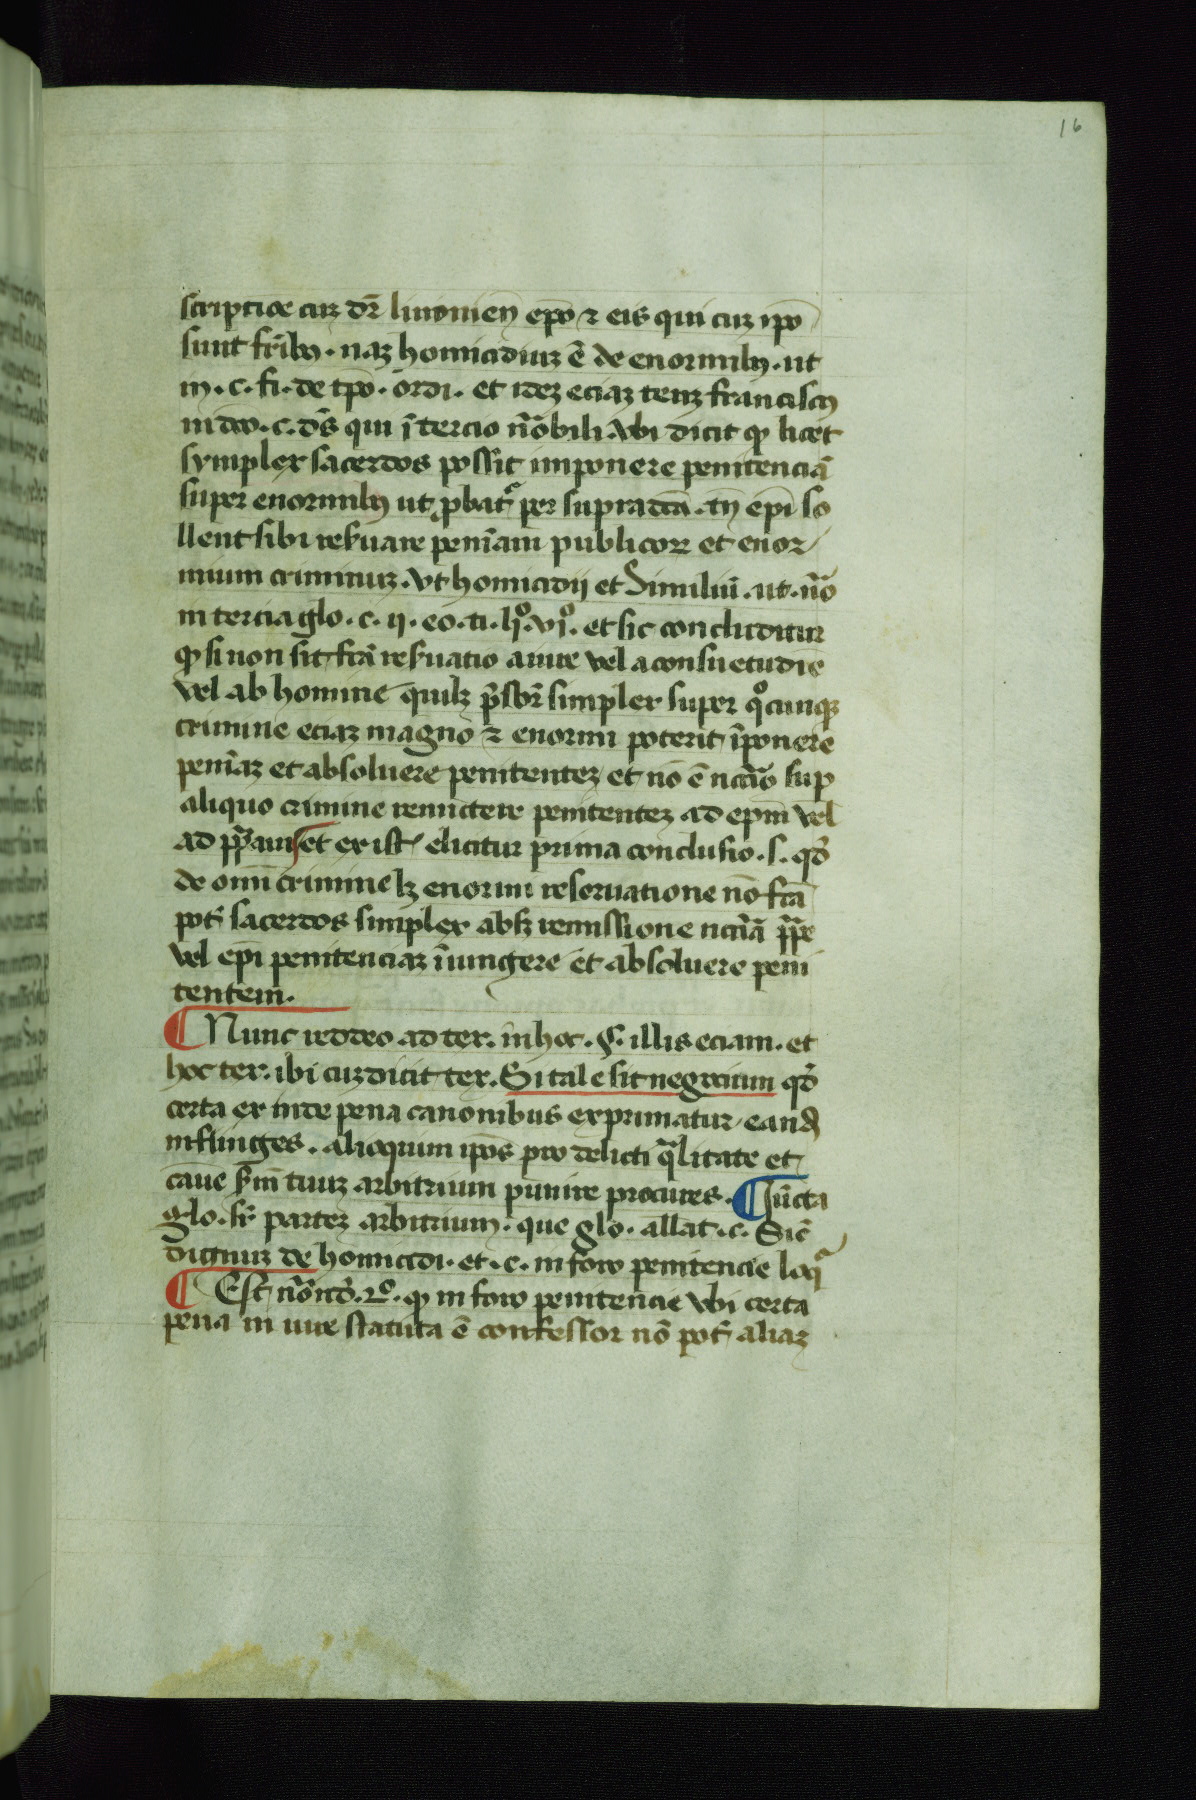 16
scriptiōe cuz dr̄ liuonieñ ep̄o ⁊ eis qui cuz ip̄o
sunt fr̄ibꝫ . naz homicidiuz ē de enormibꝫ . ut
in . c . fi . de tp̄o . ordi . et idez eciaz tenꝫ franciscꝰ
in dc̄o . c . dn̄s qui ī tercio nō̄bili vbi dicit ꝙ licet
symplex sacerdos possit imponere penitenciā
super enormibꝫ ut ꝓbat᷑ per supradc̄a . tn̄ ep̄i so
llent sibi reẜuare penīam publicoꝝ et enor
mium criminuz . vt homicidij et similiū . ut . nō̄
in tercia glo . c . ij . eo . ti . li͛º . vjº . et sic concluditur
ꝙ si non sit fc̄a reẜuatio a iure vel a consuetudīe
vel ab homine quilꝫ p̄sbr̄ simplex super qºcunqꝫ
crimine eciaz magno ⁊ enormi poterit īponere
penīaz et absoluere penitentez et nō ē nc̄cīo suꝑ
aliquo crimine remictere penitentez ad ep̄m vel
ad pp̄am et ex ist᷑ elicitur prima conclusio . s . qđ
de omī crimine lꝫ enormi reseruatione nō fc̄a
pot̄ sacerdos simplex absqꝫ remissione nc̄cīa pp̄e
vel ep̄i penitenciaz īiungere et absoluere peni
tentem .
¶ Nunc reddeo ad tex . in hoc . §. illis eciam . et
hoc tex . ibi cuz dicit tex . Si tale sit negocium qđ
certa ex inde pena canonibus exprimatur eanđ
inflinges . alioquin ip̄os pro delicti qᷓlitate et
cause ẜm tuuz arbitrium punire procures . ¶ Iūcta
glo . sr̄ partez arbitrium . que glo . allat . c . Sic̄
dignuz de homicidi . et . c . in foro penitencie loq᷑
¶ Est nō̄nđ . 2º . ꝙ in foro penitencie vbi certa
pena in iure statuta ē confessor nō pot̄ aliaz